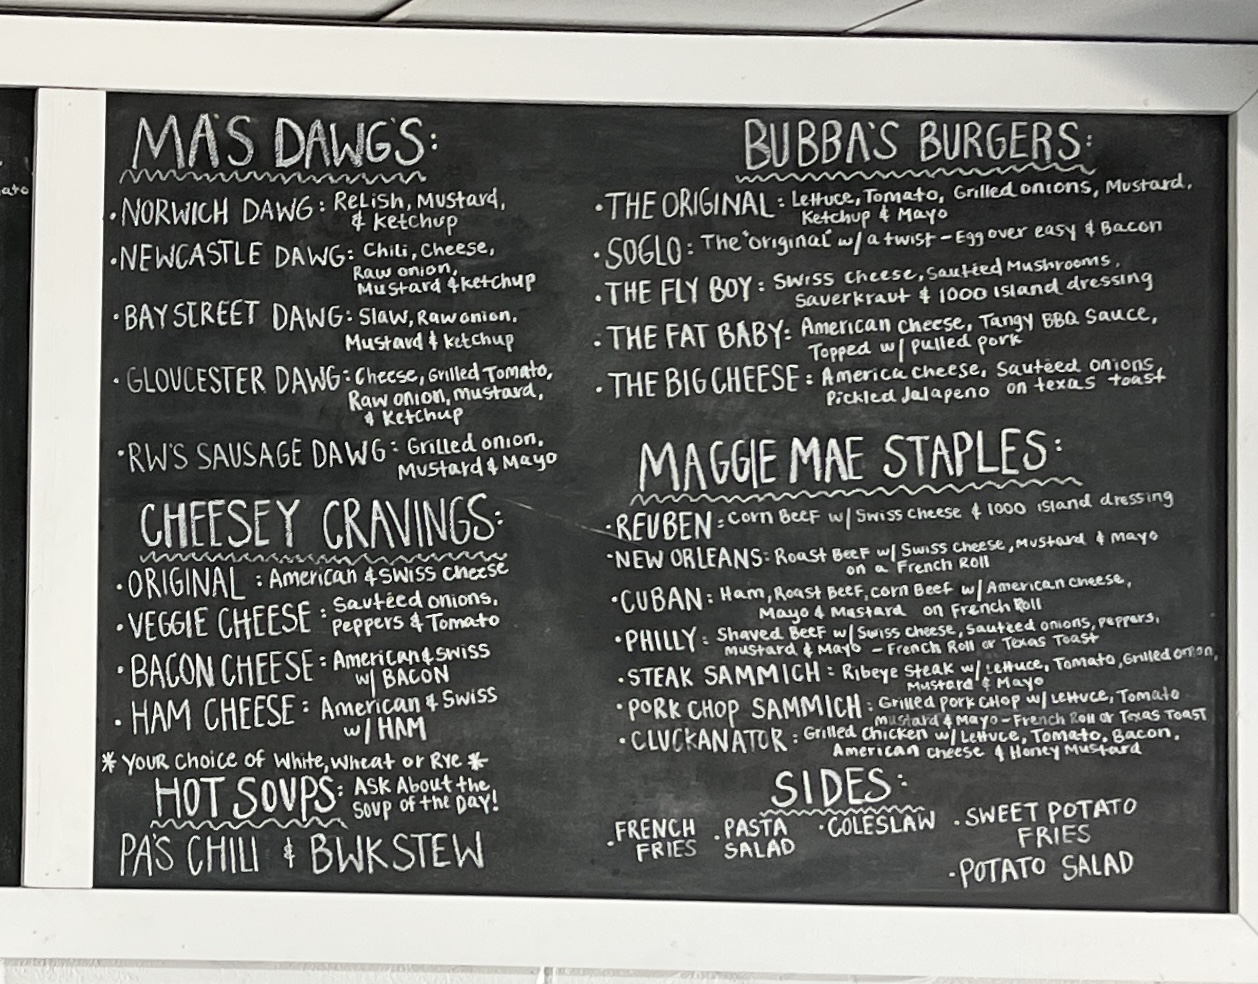 ato
MA'S DAWG'S:
·NORWICH DAWG: Relish, Mustard,
& Ketchup
·NEWCASTLE DAWG: Chili, Cheese,
Raw onion,
Mustard & Ketchup
·BAY STREET DAWG: Slaw, Raw onion,
Mustard & Ketchup
·GLOUCESTER DAWG: Cheese, Grilled Tomato,
Raw onion, Mustard,
& Ketchup
·RW'S SAUSAGE DAWG: Grilled onion,
Mustard & Mayo
CHEESEY CRAVINGS:
·ORIGINAL: American & Swiss Cheese
·VEGGIE CHEESE: Sautéed onions,
Peppers & Tomato
·BACON CHEESE: American & Swiss
w/ BACON
·HAM CHEESE: American & Swiss
w/ HAM
* Your Choice of White, Wheat or Rye *
HOT SOUPS: Ask About the
Soup of the Day!
PA'S CHILI & BWK STEW
BUBBA'S BURGERS:
·THE ORIGINAL: Lettuce, Tomato, Grilled onions, Mustard,
Ketchup & Mayo
·SOGLO: The "original" w/ a twist - Egg over easy & Bacon
·THE FLY BOY: Swiss Cheese, Sautéed Mushrooms,
Sauerkraut & 1000 Island dressing
·THE FAT BABY: American Cheese, Tangy BBQ Sauce,
Topped w/ pulled pork
·THE BIG CHEESE: America cheese, Sautéed onions,
Pickled Jalapeno on texas toast
MAGGIE MAE STAPLES:
·REUBEN: Corn Beef w/ Swiss Cheese & 1000 Island dressing
·NEW ORLEANS: Roast Beef w/ Swiss Cheese, Mustard & Mayo
on a French Roll
·CUBAN: Ham, Roast Beef, Corn Beef w/ American Cheese,
Mayo & Mustard on French Roll
·PHILLY: Shaved Beef w/ Swiss Cheese, Sautéed onions, Peppers,
Mustard & Mayo - French Roll or Texas Toast
·STEAK SAMMICH: Ribeye Steak w/ Lettuce, Tomato, Grilled onion,
Mustard & Mayo
·PORK CHOP SAMMICH: Grilled Pork Chop w/ Lettuce, Tomato
Mustard & Mayo - French Roll or Texas Toast
·CLUCKANATOR: Grilled Chicken w/ Lettuce, Tomato, Bacon,
American cheese & Honey Mustard
SIDES:
·FRENCH FRIES
·PASTA SALAD
·COLESLAW
·SWEET POTATO
FRIES
·POTATO SALAD